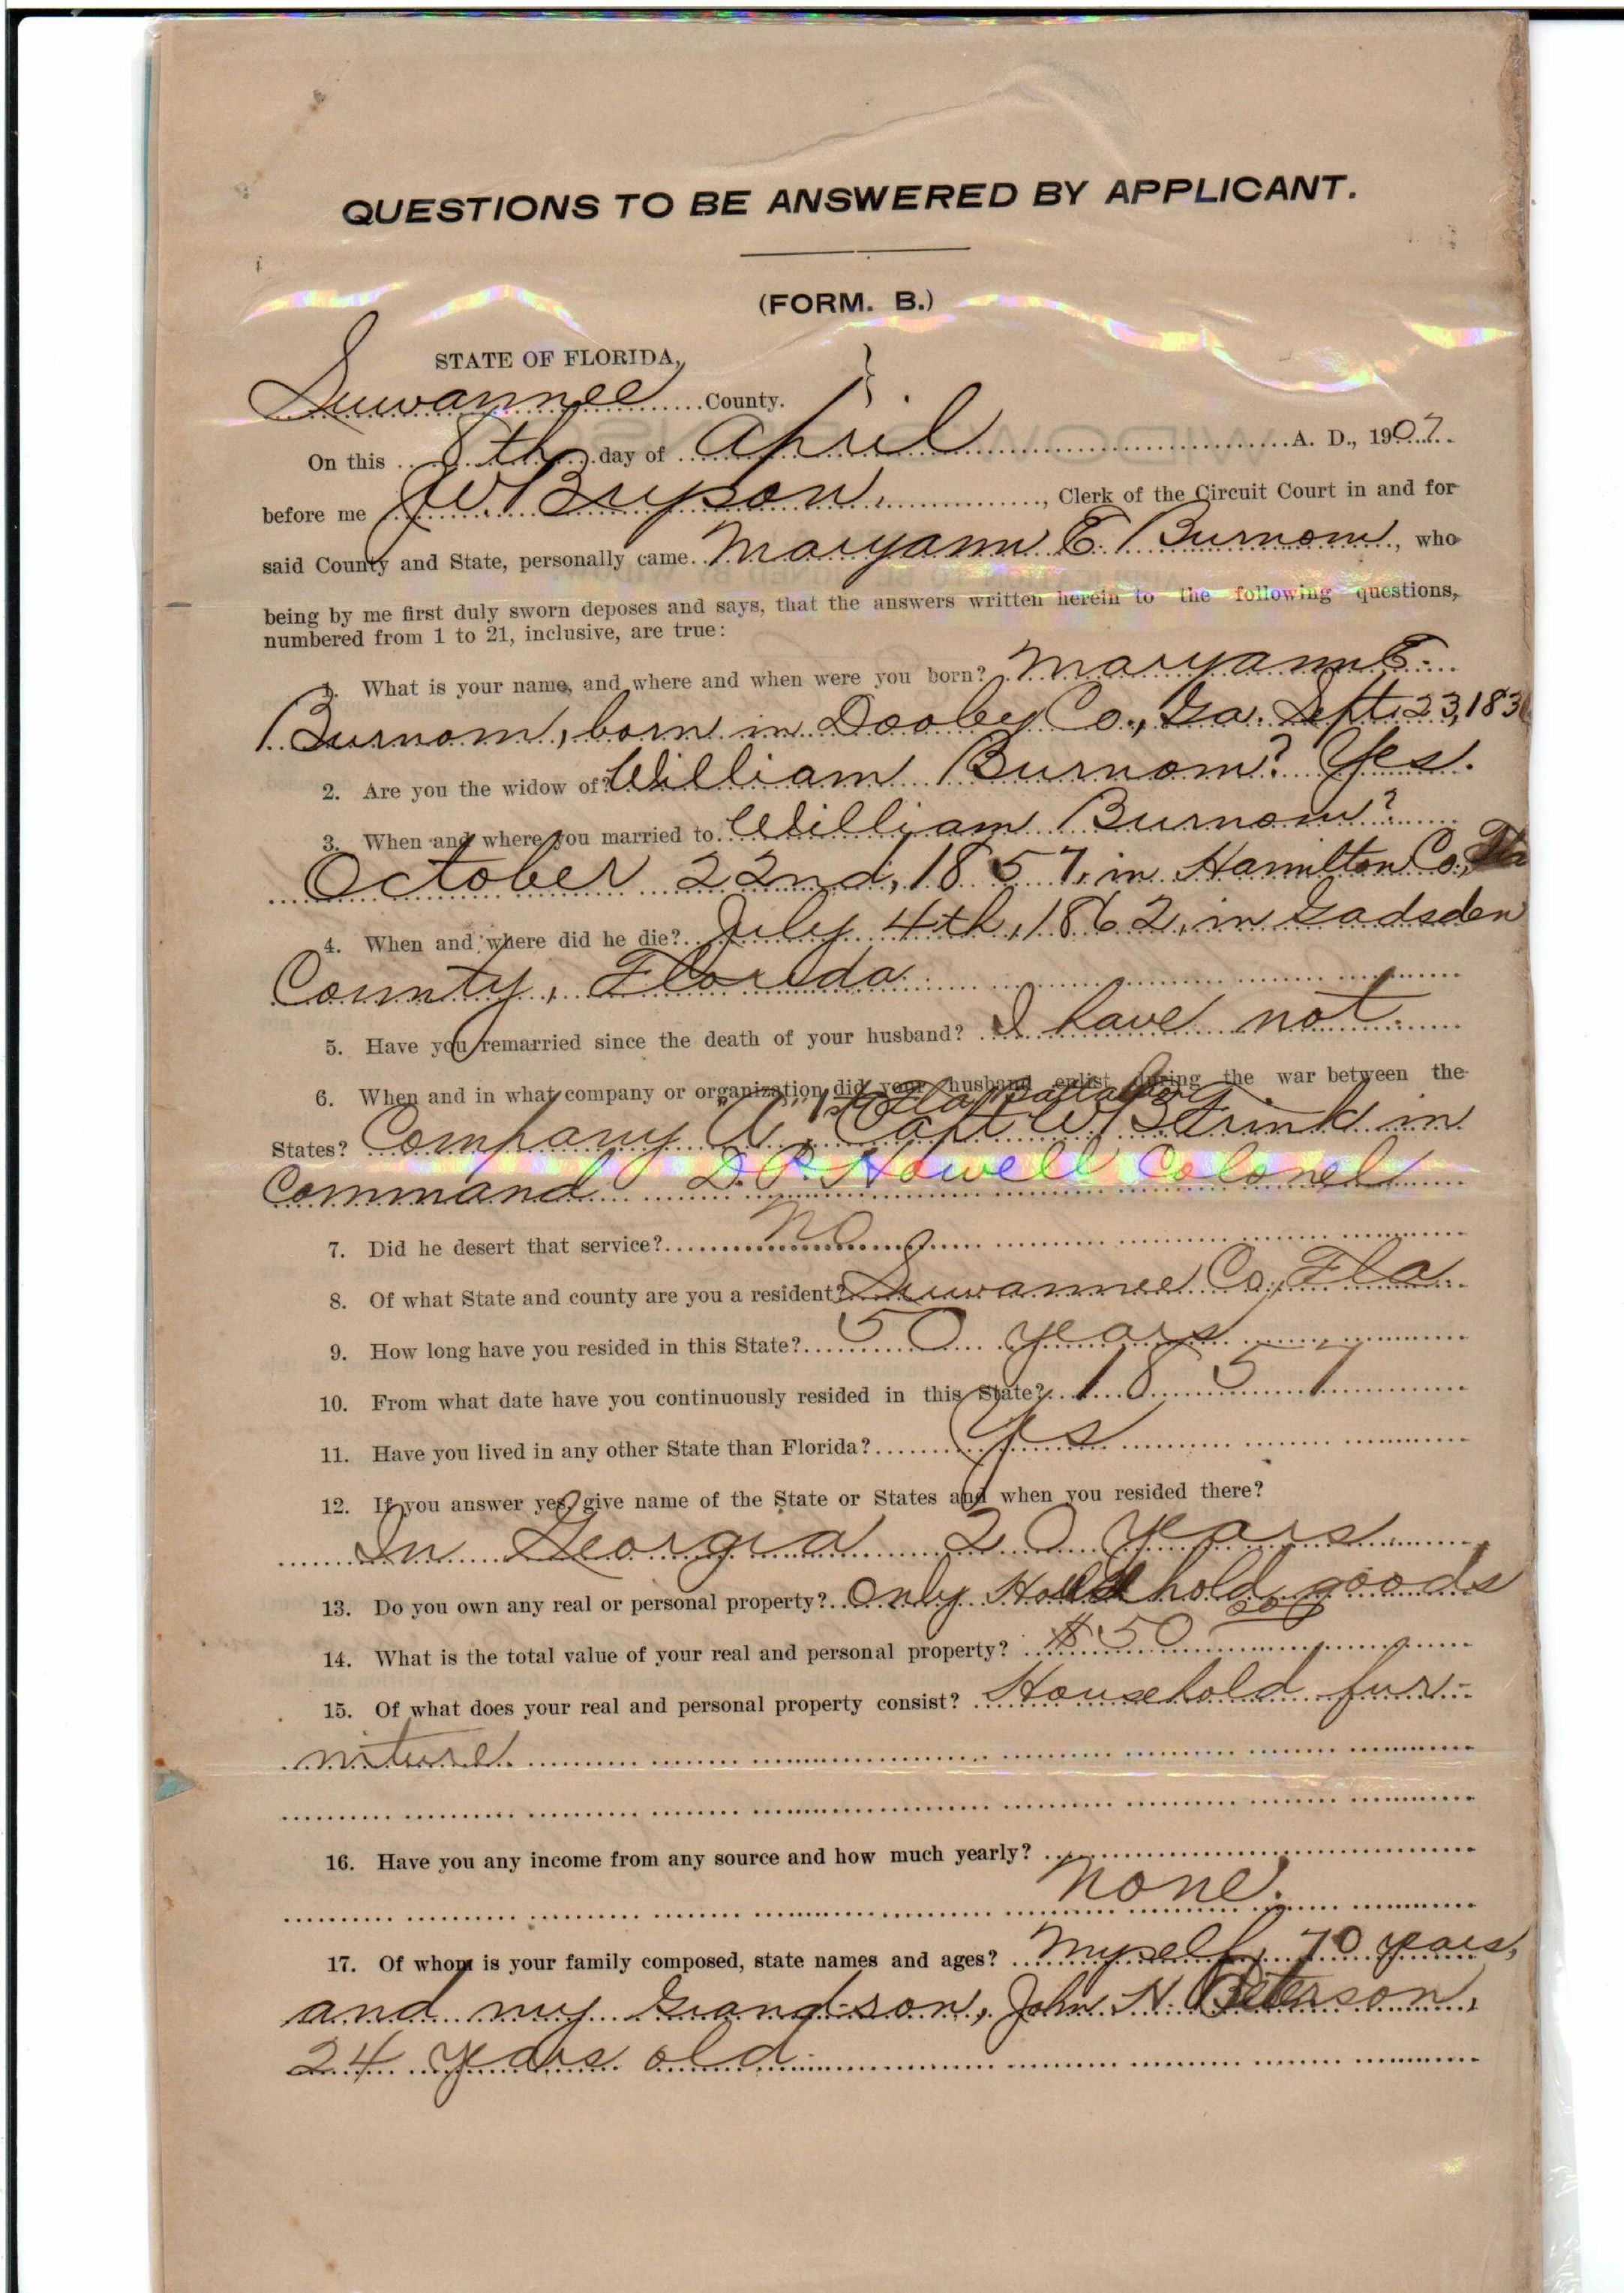 QUESTIONS TO BE ANSWERED BY APPLICANT.
(FORM. B.)
STATE OF FLORIDA,
Suwannee County.
On this 8th day of April A. D., 1907.
before me JW Bryson, Clerk of the Circuit Court in and for
said County and State, personally came Maryann E. Burnom, who
being by me first duly sworn deposes and says, that the answers written herein to the following questions,
numbered from 1 to 21, inclusive, are true:
1. What is your name, and where and when were you born? Maryann E.
Burnom, born in Dooley Co., Ga. Sept. 23, 183
2. Are you the widow of? William Burnom? Yes.
3. When and where you married to William Burnom?
October 22nd, 1857, in Hamilton Co., Fla
4. When and where did he die? July 4th, 1862, in Gadsden
County, Florida
5. Have you remarried since the death of your husband? I have not.
6. When and in what company or organization did your husband enlist during the war between the
1st Fla Battalion
States? Company "A", Capt W B Frink in
Command D. P. Howell Colonel
7. Did he desert that service? No
8. Of what State and county are you a resident? Suwannee Co., Fla.
9. How long have you resided in this State? 50 years
10. From what date have you continuously resided in this State? 1857
11. Have you lived in any other State than Florida? Yes
12. If you answer yes, give name of the State or States and when you resided there?
In Georgia 20 years.
13. Do you own any real or personal property? Only Household goods
14. What is the total value of your real and personal property? $50 00
15. Of what does your real and personal property consist? Household fur-
niture.
16. Have you any income from any source and how much yearly?
None.
17. Of whom is your family composed, state names and ages? Myself, 70 years,
and my Grand-son, John H. Peterson,
24 years old.